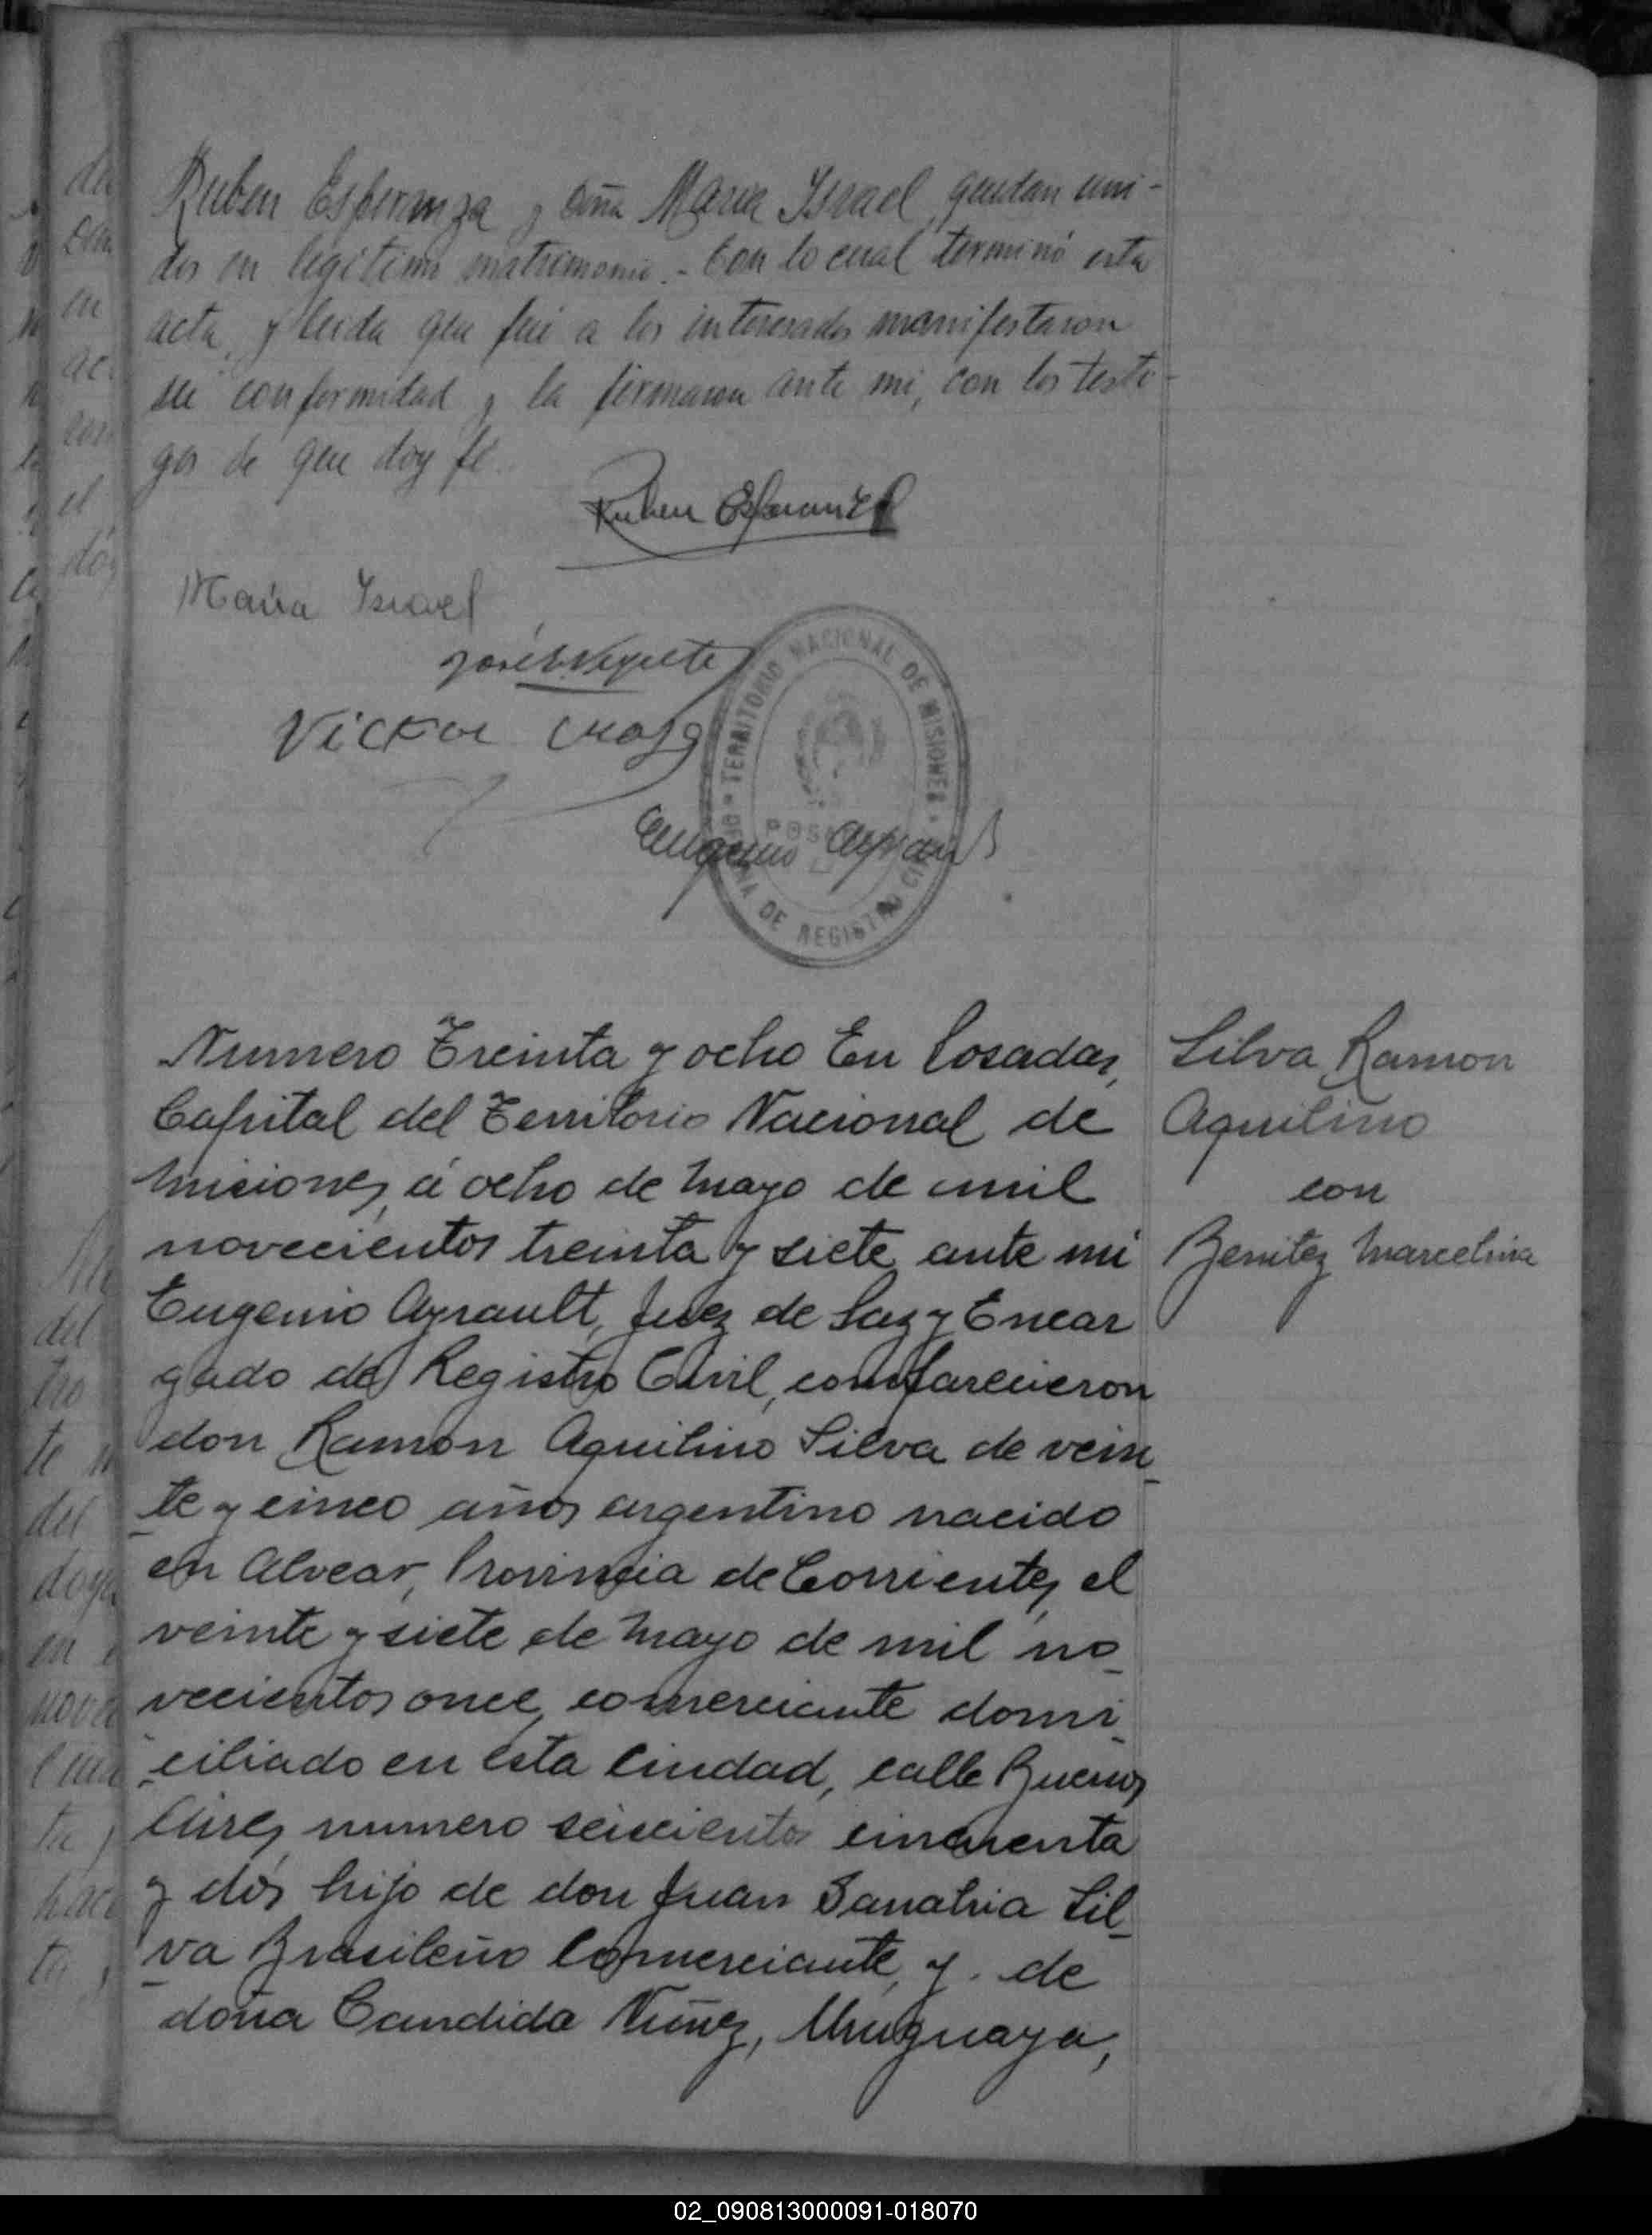 Ruben Esperanza y doña Maria Israel, quedan uni-
dos en legitimo matrimonio.- Con lo cual terminó esta
acta, y leida que fué a los interesados manifestaron
su conformidad y la firmaron ante mi, con los testi-
gos de que doy fé.
Ruben Esperanza
Maria Israel
Victor
TERRITORIO NACIONAL DE MISIONES
POSADAS
OFICINA DE REGISTRO CIVIL
Eugenio Ayrault
Numero Treinta y ocho En Posadas,
Capital del Territorio Nacional de
Misiones, á ocho de Mayo de mil
novecientos treinta y siete, ante mi
Eugenio Ayrault, Juez de Paz y Encar
gado del Registro Civil, comparecieron
don Ramon Aquilino Silva de vein_
_te y cinco años argentino nacido
en Alvear, Provincia de Corrientes, el
veinte y siete de Mayo de mil no_
vecientos once, comerciante domi_
_ciliado en esta Ciudad, calle Buenos
Aires, numero seiscientos cincuenta
y dós hijo de don Juan Sanabria Sil_
_va Brasileño Comerciante, y de
doña Candida Nuñez, Uruguaya,
Silva Ramon
Aquilino
con
Benitez Marcelina
02_090813000091-018070